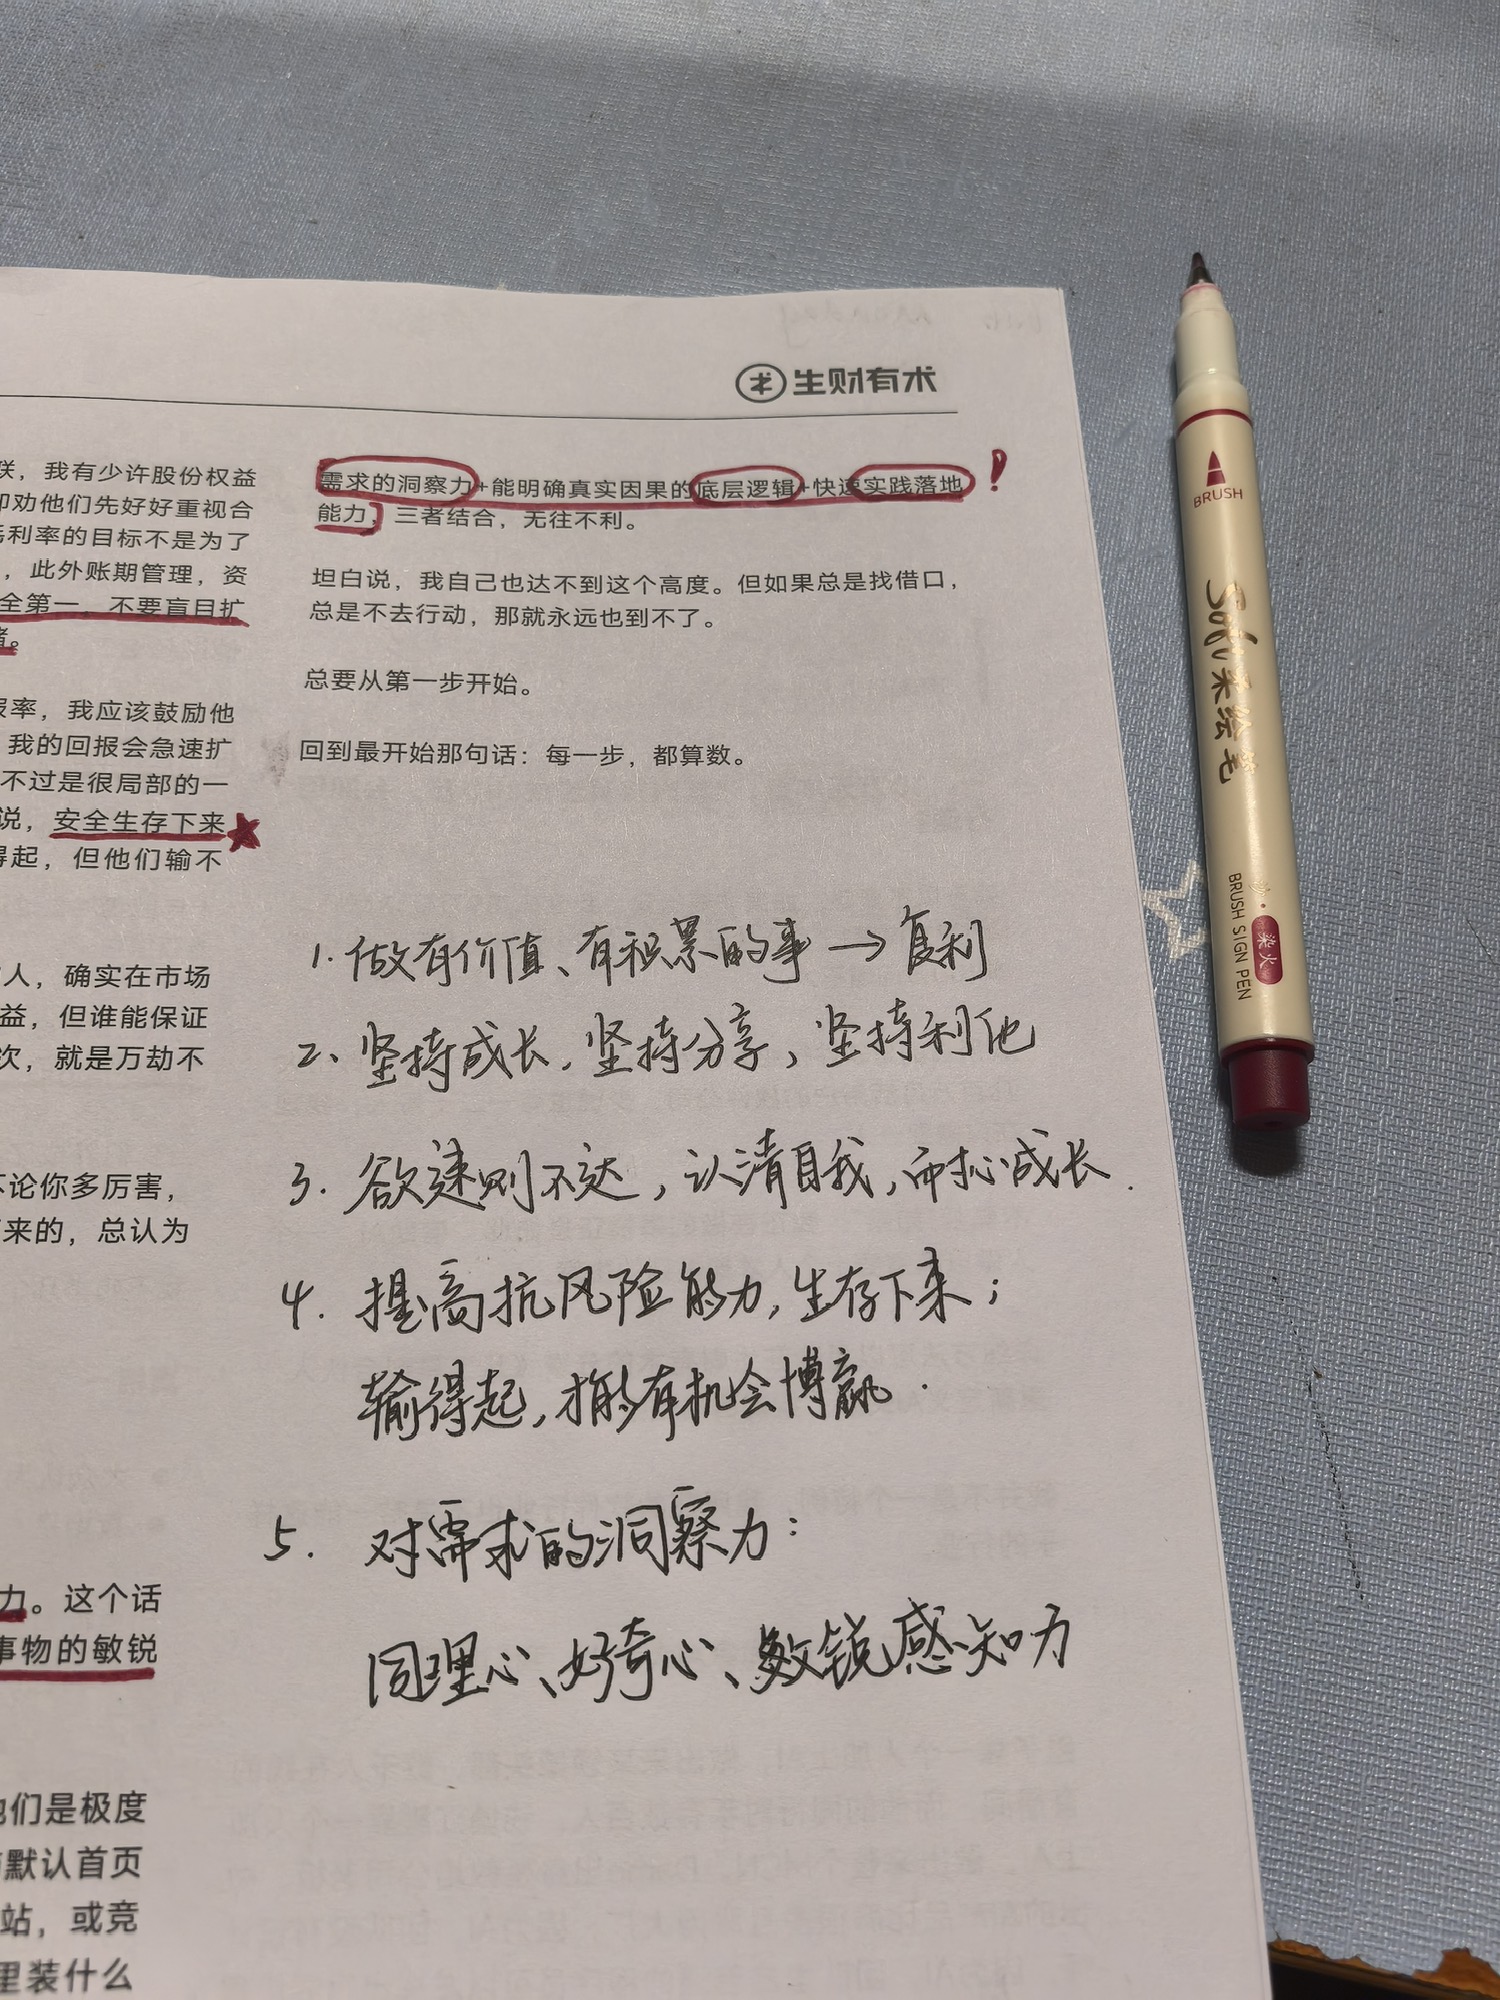 生财有术
联，我有少许股份权益
却劝他们先好好重视合
利率的目标不是为了
，此外账期管理，资
全第一，不要盲目扩
。
率，我应该鼓励他
我的回报会急速扩
不过是很局部的一
说，安全生存下来
得起，但他们输不
人，确实在市场
益，但谁能保证
次，就是万劫不
不论你多厉害，
来的，总认为
力。这个话
事物的敏锐
他们是极度
默认首页
站，或竞
里装什么
需求的洞察力+能明确真实因果的底层逻辑+快速实践落地
能力，三者结合，无往不利。
坦白说，我自己也达不到这个高度。但如果总是找借口，
总是不去行动，那就永远也到不了。
总要从第一步开始。
回到最开始那句话：每一步，都算数。
1. 做有价值、有积累的事→复利
2、坚持成长，坚持分享，坚持利他
3. 欲速则不达，认清自我，耐心成长.
4. 提高抗风险能力，生存下来；
输得起，才能有机会博赢.
5. 对需求的洞察力：
同理心、好奇心、敏锐感知力
BRUSH
Soft柔绘笔
染火
BRUSH SIGN PEN